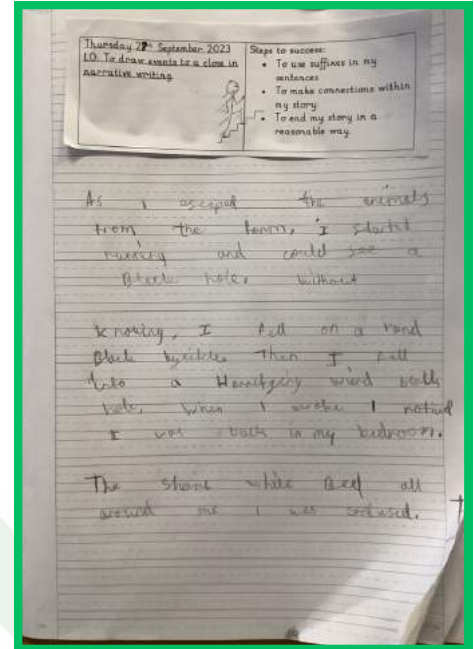 Thursday 28th September 2023
LO: To draw events to a close in
narrative writing
Steps to success:
• To use suffixes in my
sentences
• To make connections within
my story
• To end my story in a
reasonable way.
As I escaped the animals
from the farm, I started
running and could see a
Black hole, without
knowing, I fell on a
Black Then I fell
into a
hole, When I woke I noticed
I was back in my bedroom.
The white all
around me I was confused.